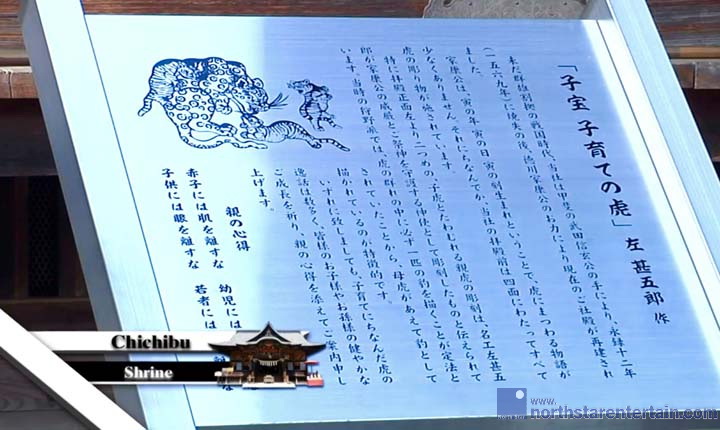 「子宝 子育ての虎」 左 甚五郎 作
未だ群雄割拠の戦国時代、当社は甲斐の武田信玄公の手により、永禄十二年
(一五六九年)に焼失の後、徳川家康公のお力により現在のご社殿が再建され
ました。
家康公は、寅の年、寅の日、寅の刻生まれということで、虎にまつわる物語が
少なくありません。それにちなんでか、当社の拝殿前は四面にわたってすべて
虎の彫り物が施されています。
特に拝殿正面左より二つめの、子虎とたわむれる親虎の彫刻は、名工左甚五
郎が家康公の威厳とご祭神を守護する神使として彫刻したものと伝えられて
います。当時の狩野派では、虎の群れの中に必ず一匹の豹を描くことが定法と
されていたことから、母虎があえて豹として
描かれているのが特徴的です。
いずれに致しましても、子育てにちなんだ虎の
逸話は数多く、皆様のお子様やお孫様の健やかな
ご成長を祈り、親の心得を添えてご案内申し
上げます。
親の心得
赤子には肌を離すな 幼児には
子供には眼を離すな 若者には
Chichibu
Shrine
www.
northstarentertain.com